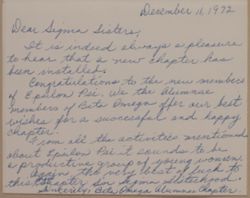 December 11, 1972
Dear Sigma Sisters,
It is indeed always a pleasure
to hear that a new chapter has
been installed.
Congratulations to the new members
of Epsilon Psi. We the Alumnae
members of Beta Omega offer our best
wishes for a successful and happy
chapter.
From all the activities mentioned
about Epsilon Psi it sounds to be
a productive group of young women.
Again the very best of luck to
this chapter in Sigma sisterhood.
Sincerely, Beta Omega Alumnae Chapter.